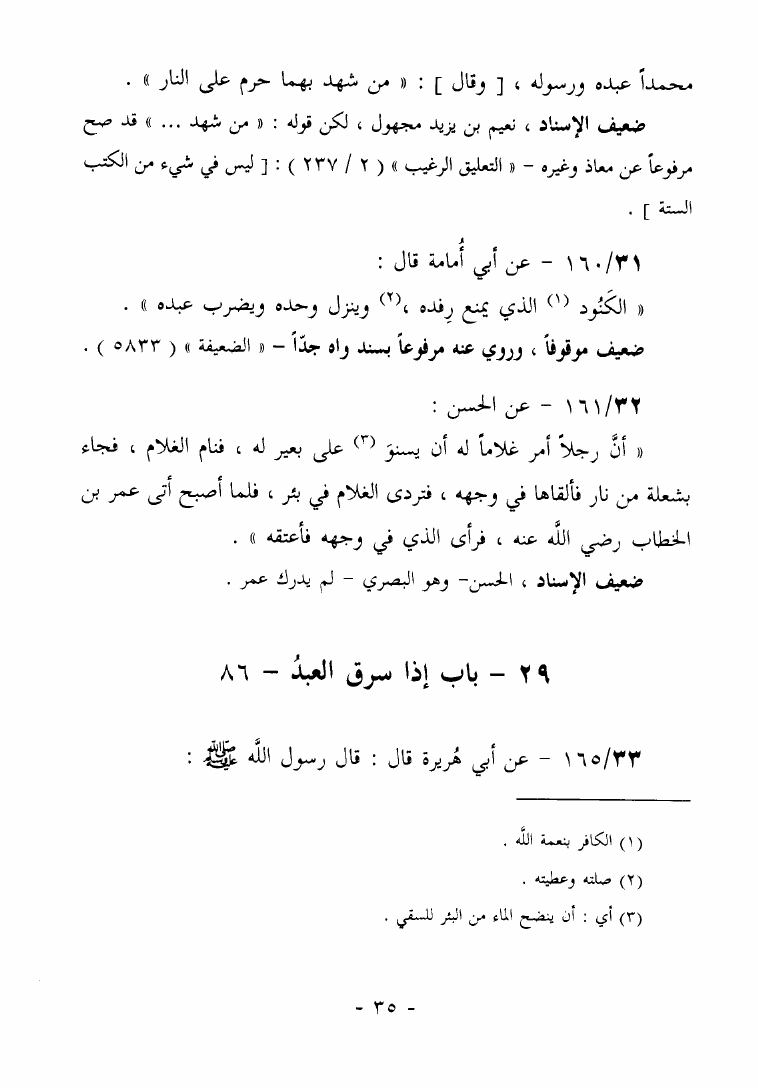 محمداً عبده ورسوله ، [ وقال ] : « من شهد بهما حرم على النار » .
ضعيف الإسناد ، نعيم بن يزيد مجهول ، لكن قوله : « من شهد ... » قد صح
مرفوعاً عن معاذ وغيره – « التعليق الرغيب » ( ٢ / ٢٣٧ ) : [ ليس في شيء من الكتب
الستة ] .
١٦٠/٣١ – عن أبي أُمامة قال :
« الكَنُود (١) الذي يمنع رِفده ،(٢) وينزل وحده ويضرب عبده » .
ضعيف موقوفاً ، وروي عنه مرفوعاً بسند واه جدّاً – « الضعيفة » ( ٥٨٣٣ ) .
١٦١/٣٢ – عن الحسن :
« أنَّ رجلاً أمر غلاماً له أن يسنوَ (٣) على بعير له ، فنام الغلام ، فجاء
بشعلة من نار فألقاها في وجهه ، فتردى الغلام في بئر ، فلما أصبح أتى عمر بن
الخطاب رضي اللَّه عنه ، فرأى الذي في وجهه فأعتقه » .
ضعيف الإسناد ، الحسن– وهو البصري – لم يدرك عمر .
٢٩ – باب إذا سرق العبدُ – ٨٦
١٦٥/٣٣ – عن أبي هُريرة قال : قال رسول اللَّه ﷺ :
(١) الكافر بنعمة اللَّه .
(٢) صلته وعطيته .
(٣) أي : أن ينضح الماء من البئر للسقي .
- ٣٥ -